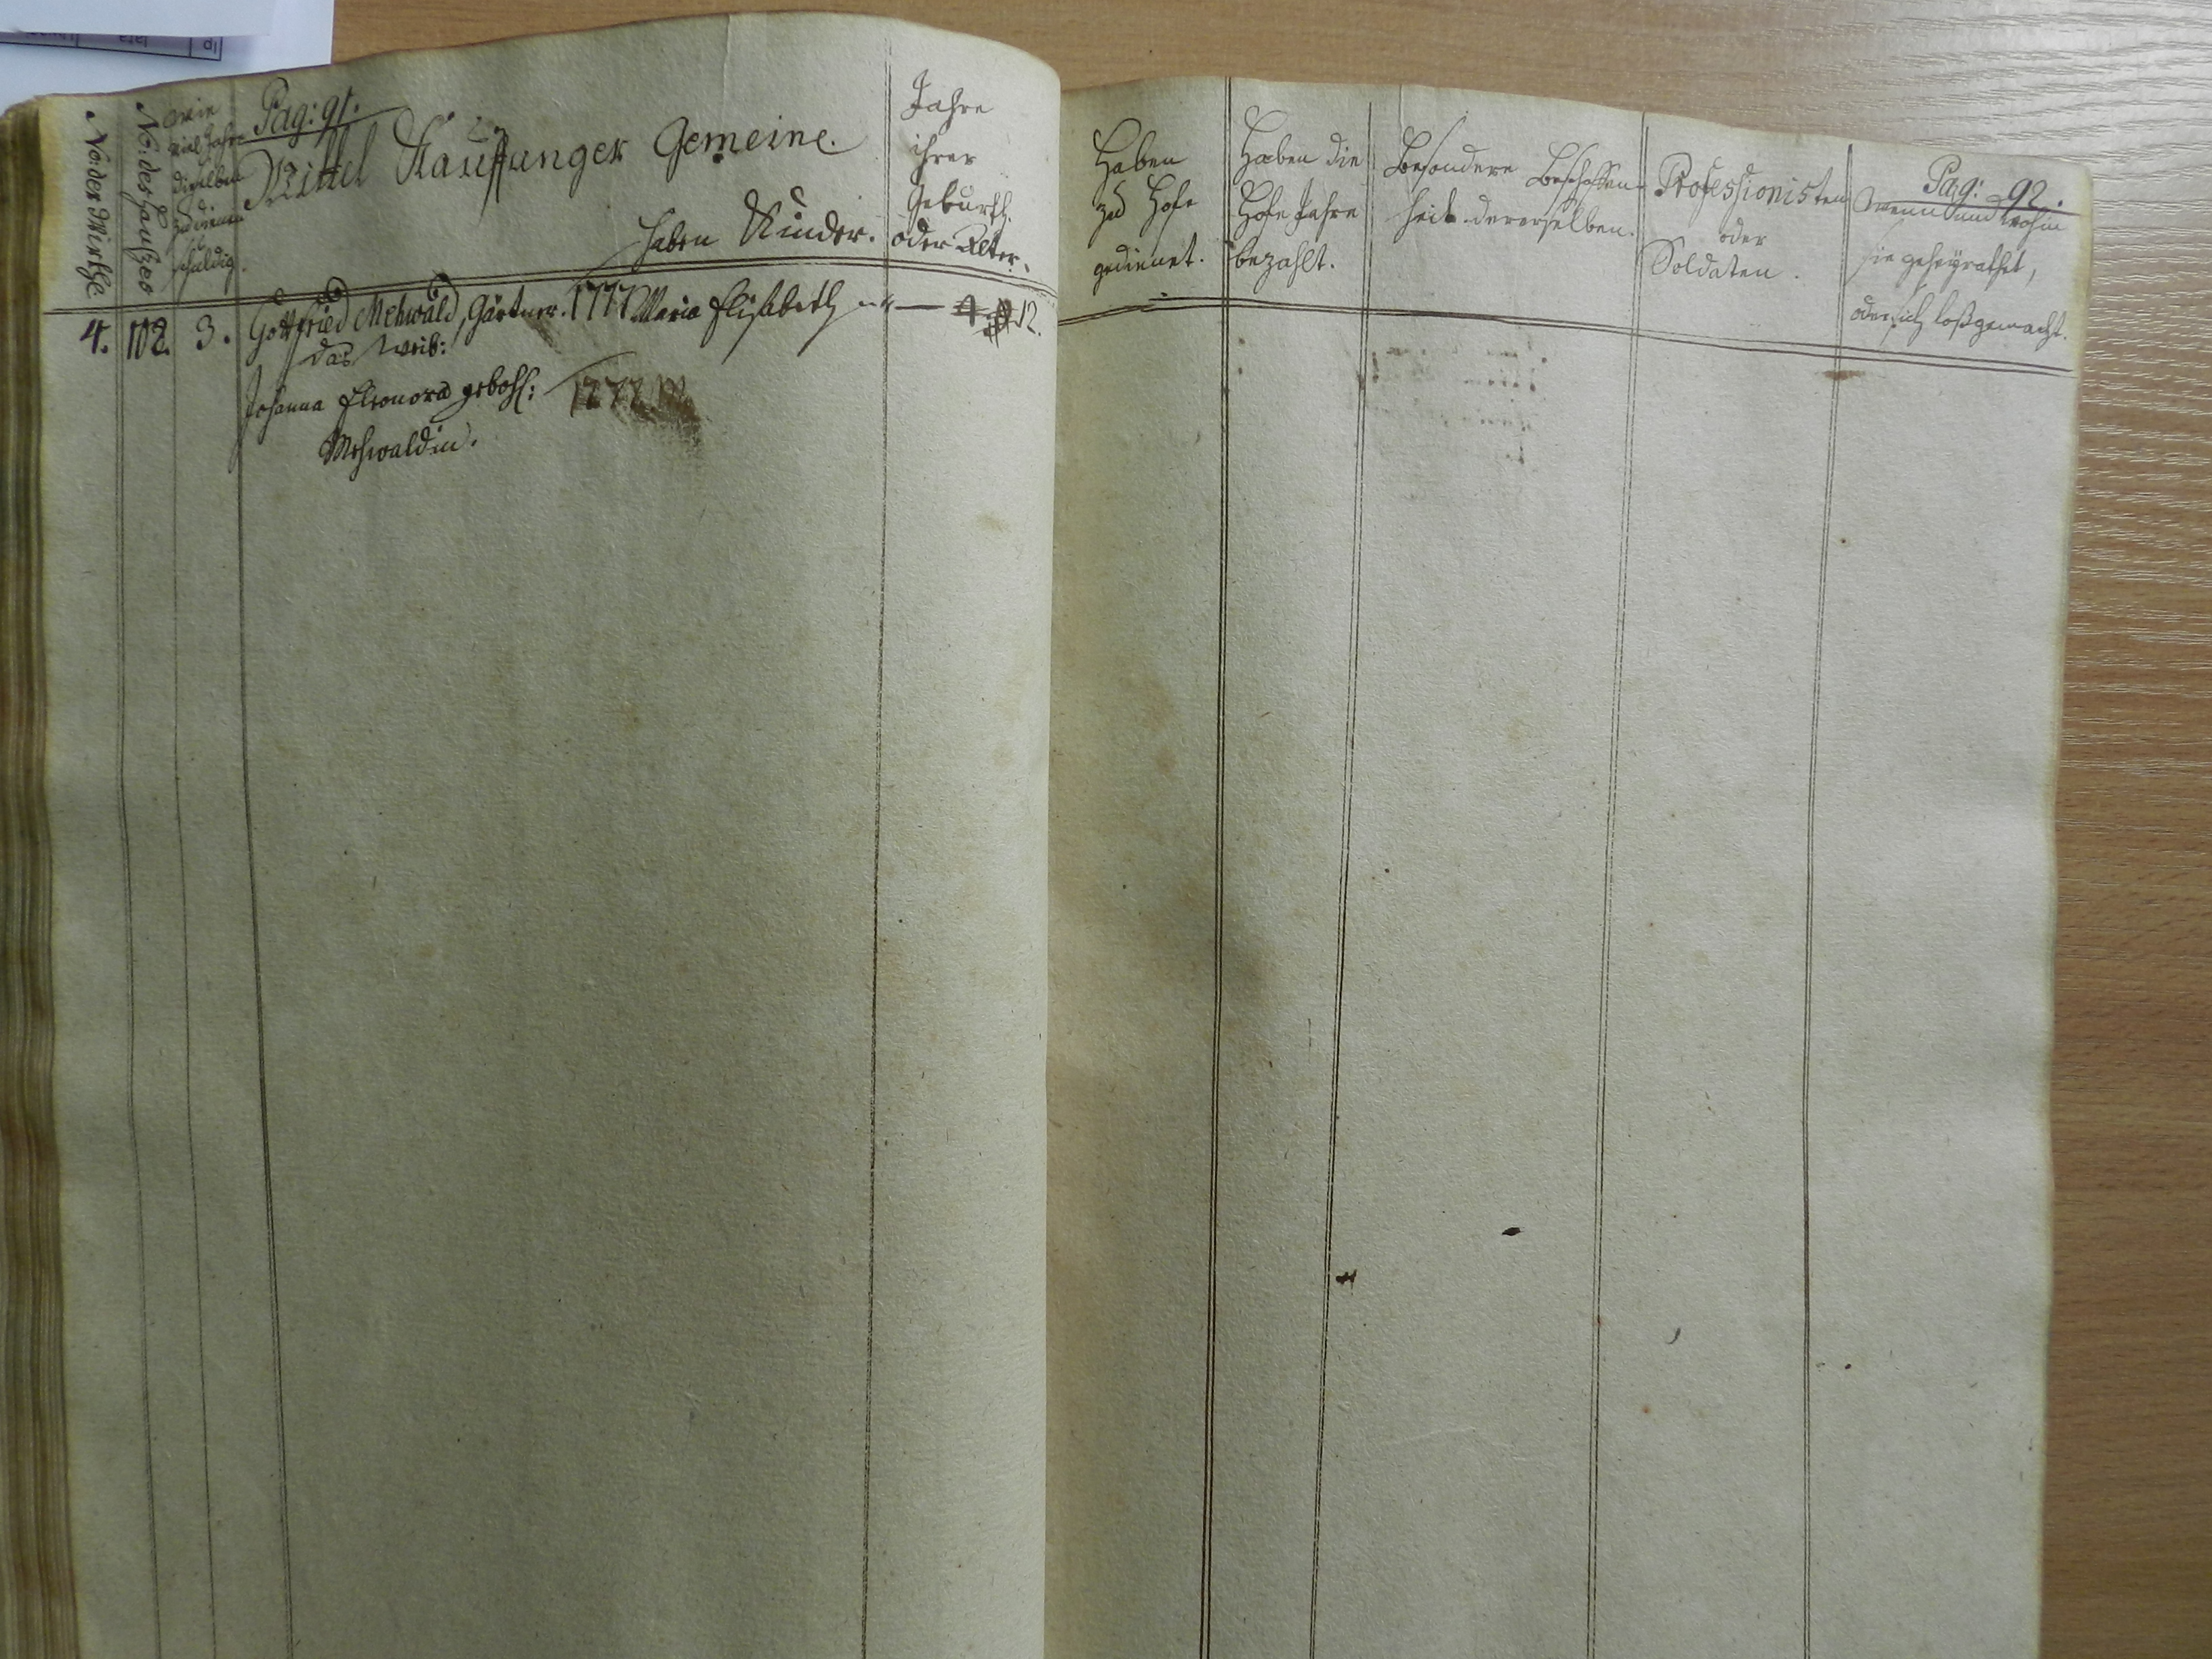 Pag: 91.
No: der Wirthe
No: des Haußes
Wie
viel Jahre
dieselben
zu dienen
schuldig.
Mittel Kauffunger Gemeine.
haben Kinder.
Jahre
ihrer
Geburth.
oder Alter.
4. 102. 3. Gottfried Mehwald, Gärtner. 1777 Maria Elisabeth — 12.
das Weib:
Johanna Eleonora gebohr:
Mehwaldin.
1777
Pag: 92.
Haben
zu Hofe
gedienet.
Haben die
Hofe Jahre
bezahlt.
Besondere Beschaffen-
heit dererselben.
Professionisten
oder
Soldaten.
Wenn und wohin
sie geheyrathet,
oder sich loßgemacht.